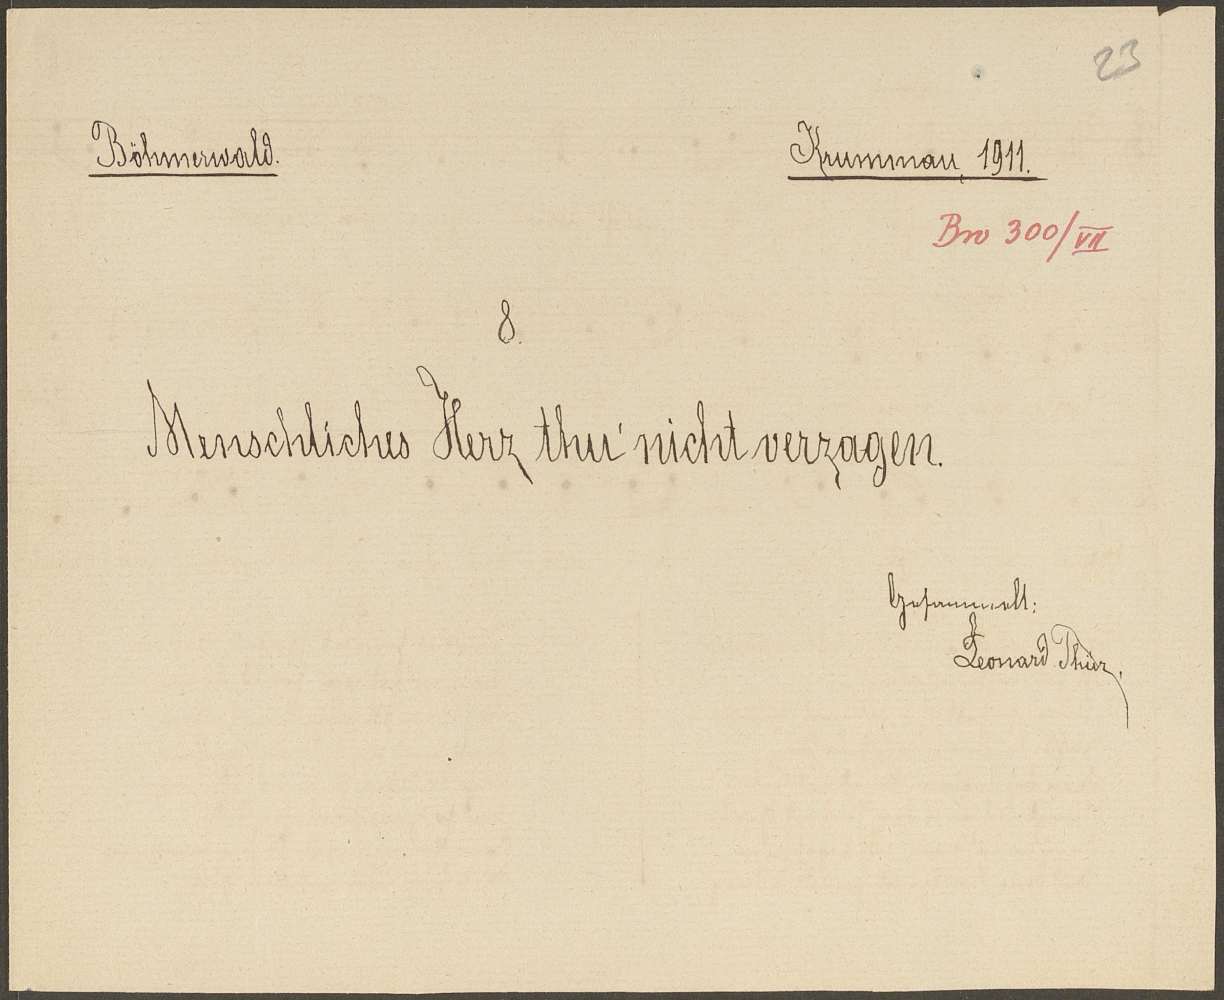 23
Böhmerwald. Krummau, 1911.
Bro 300/VII
8.
Menschliches Herz thu' nicht verzagen.
Gesammelt:
Leonard Thür.